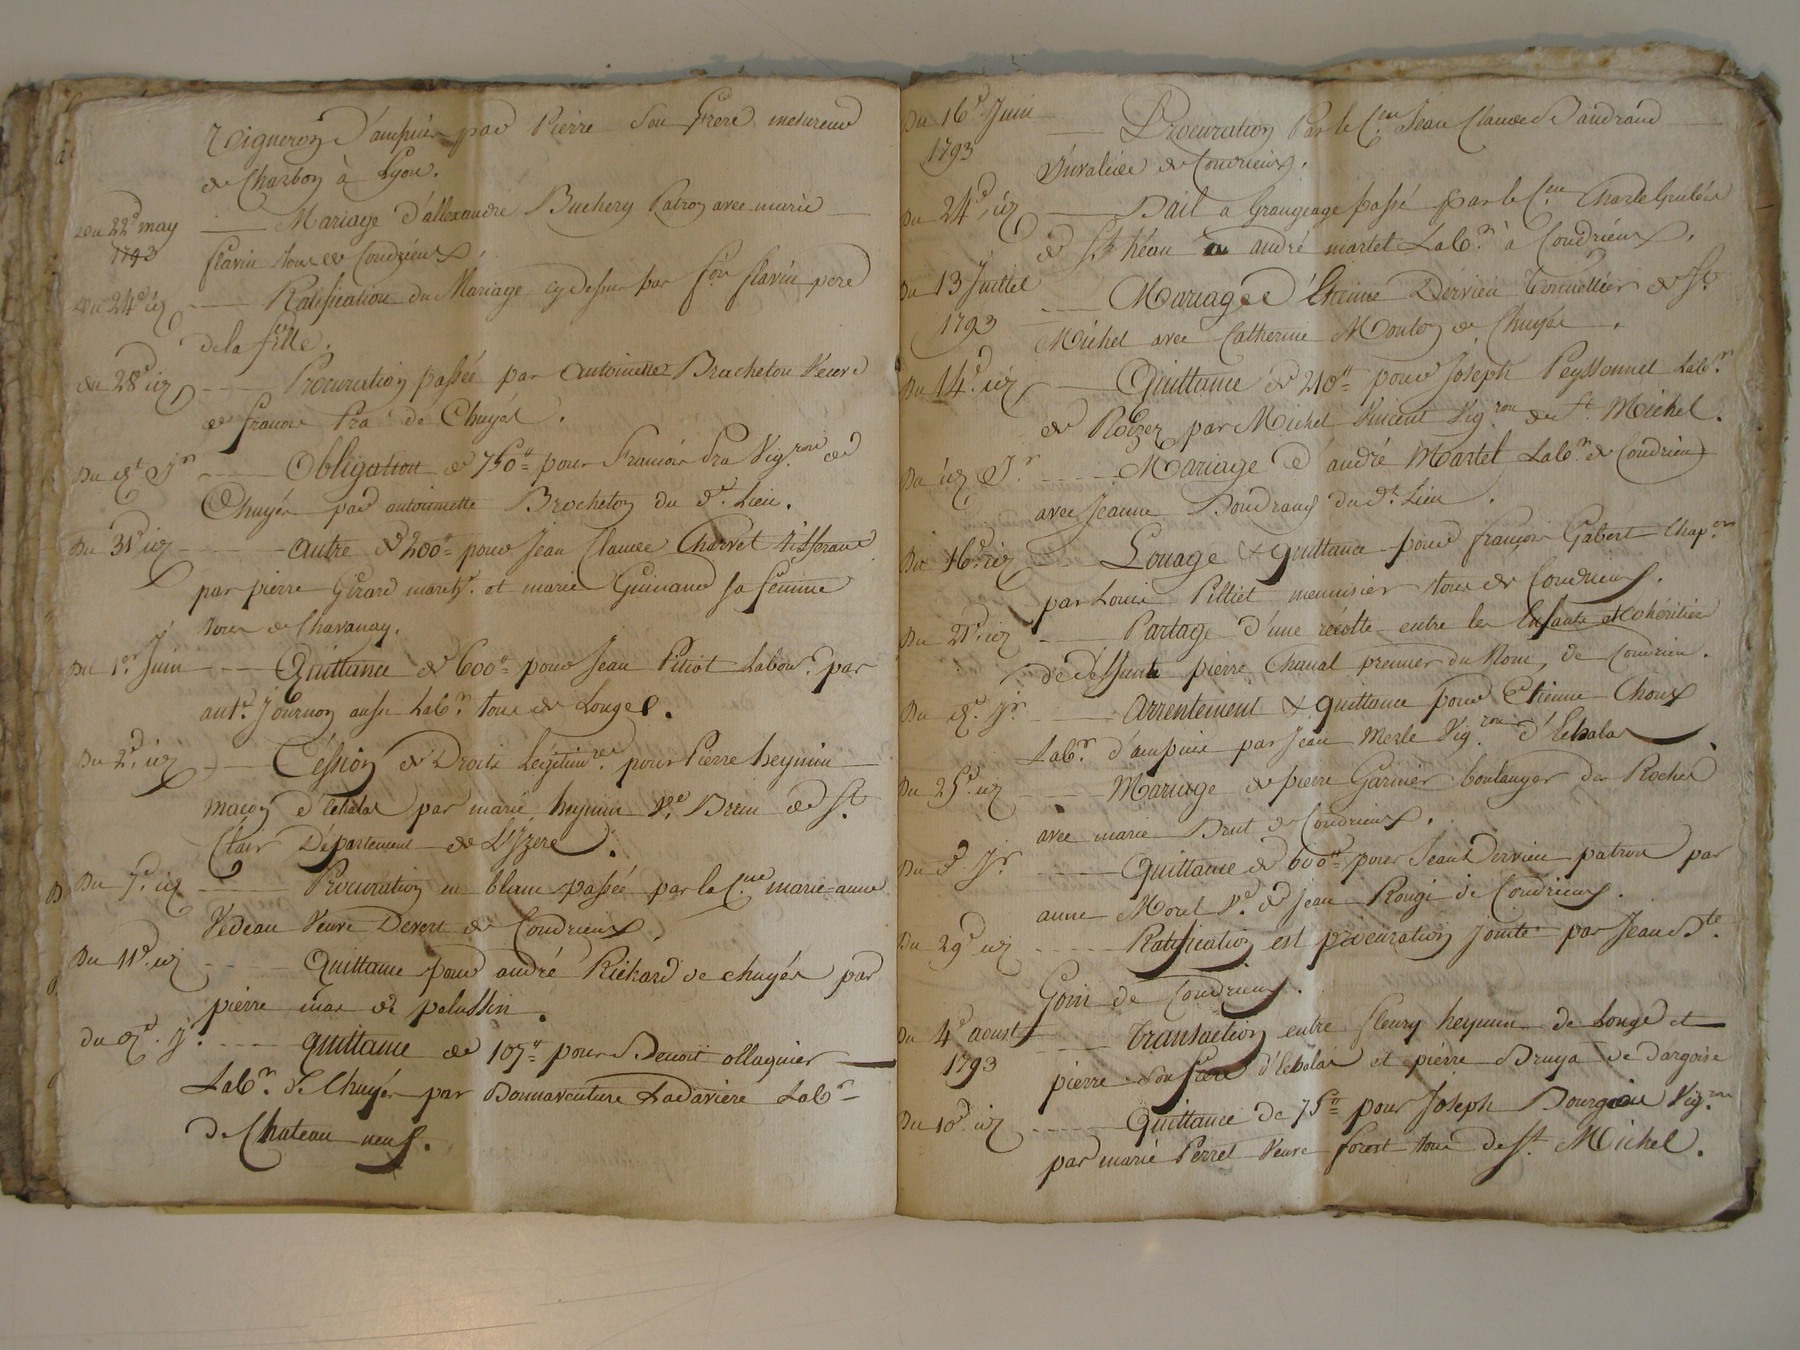 Vigneron d'ampuis par Pierre son frere mesureur
de Charbon à Lyon.
du 22d may 1793 Mariage d'allexandre Buchery Patron avec marie
flavin tous de Condrieux.
du 24d id Ratification du Mariage cy dessus par fois flavin pere
de la fille.
du 28d id Procuration passée par Antoinette Bracheton Veuve
de francois Pra de Chuyés.
Du dt Jr Obligation de 750ᵗᵗ pour Francois Pra Vigron de
Chuyés par antoinette Brocheton du dt Lieu.
Du 31d id autre de 200ᵗᵗ pour Jean Claude Charvet Tisserand
par pierre Girard marchd et marie Guinand sa femme
tous de Chavanay.
Du 1er Juin Quittance de 600ᵗᵗ pour Jean Pitiot Labour. par
ante. Journon aussi Labr. tous de Longes.
Du 2d id Céssion de Droits Légitimres pour Pierre heymin
maçon d'Echalas par marie heymin Ve. Brun de St.
Clair Département de L'Yzere.
Du 7d id Procuration en blanc passée par la Cne marie-anne
Vedeau Veuve Devert de Condrieux
Du 11d id Quittance pour andré Richard de chuyés par
pierre mas de pelussin.
du dt. Jr. quittance de 107ᵗᵗ pour Benoit ollagnier
Labr. de Chuyés par Bonnaventure Ladavière Labr
de Chateau neuf.
Du 16d Juin 1793 Procuration Par le Cen Jean Claude Baudrand
Invalide de Condrieux.
Du 24d id Bail a Grangeage passé par le Cen Charle
de St. héan a andré martel Labr. à Condrieux.
Du 13 Juillet 1793 Mariage d'Etienne Dervieu Tonnellier de St.
Michel avec Catherine Mouton de Chuyés.
Du 14d. id Quittance de 210ᵗᵗ pour Joseph Peyssonnel Labr.
de Roizey par Michel Vincent Vigron de St. Michel.
Du id Jr. Mariage d'andré Martel Labr. de Condrieu
avec Jeanne Boudrand du dt. Lieu.
Du 16d. id Louage & quittance pour françois Gabert Chapon
par Louis Pilliet menuisier tous de Condrieux.
Du 21d. id Partage d'une récolte entre les Enfants et Cohéritiers
de déffunt pierre Chanal premier du Nom, de Condrieu.
Du dt. Jr. Arrentement & quittance pour Etienne Choux
Labr. d'ampuis par Jean Merle Vigron d'Echalas.
Du 25d. id Mariage de pierre Garnier boulanger des Roches
avec marie Brut de Condrieux.
Du d. Jr. Quittance de 600ᵗᵗ pour Jean Dervieu patron par
anne Morel Ve. de Jean Rougé de Condrieux.
Du 29d id Ratification est procuration jointe par Jean Bte.
Goin de Condrieux.
Du 4d aoust 1793 Transaction entre fleury heymin de Longe et
pierre son frere d'Echalas et pierre Bruya de dargoire
Du 10d. id Quittance de 75ᵗᵗ pour Joseph Bourgein Vigron
par marie Perret Veuve forest tous de St. Michel.